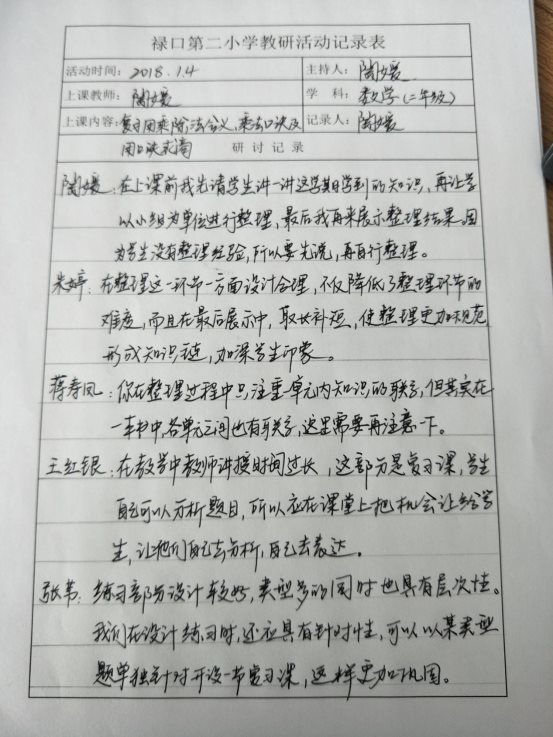 禄口第二小学教研活动记录表
活动时间：2018.1.4 主持人：陶媛
上课教师：陶媛 学 科：数学（二年级）
上课内容：复习用乘除法含义，乘法口诀及 记录人：陶媛
用口诀求商 研 讨 记 录
陶媛：在上课前我先请学生讲一讲这学期学到的知识，再让学
以小组为单位进行整理，最后我再来展示整理结果。因
为学生没有整理经验，所以要先说，再自行整理。
朱婷：在整理这一环节一方面设计合理，不仅降低了整理环节的
难度，而且在最后展示中，取长补短，使整理更加规范
形成知识链，加深学生印象。
蒋寿凤：你在整理过程中只注重单元内知识的联系，但其实在
一本书中，各单元之间也有联系，这里需要再注意一下。
王红银：在教学中教师讲授时间过长，这部分是复习课，学生
自己可以分析题目，所以应在课堂上把机会让给学
生，让他们自己去分析，自己去表达。
张苇：练习部分设计较好，类型多的同时也具有层次性。
我们在设计练习时，还应具有针对性，可以以某类型
题单独针对开设一节复习课，这样更加巩固。